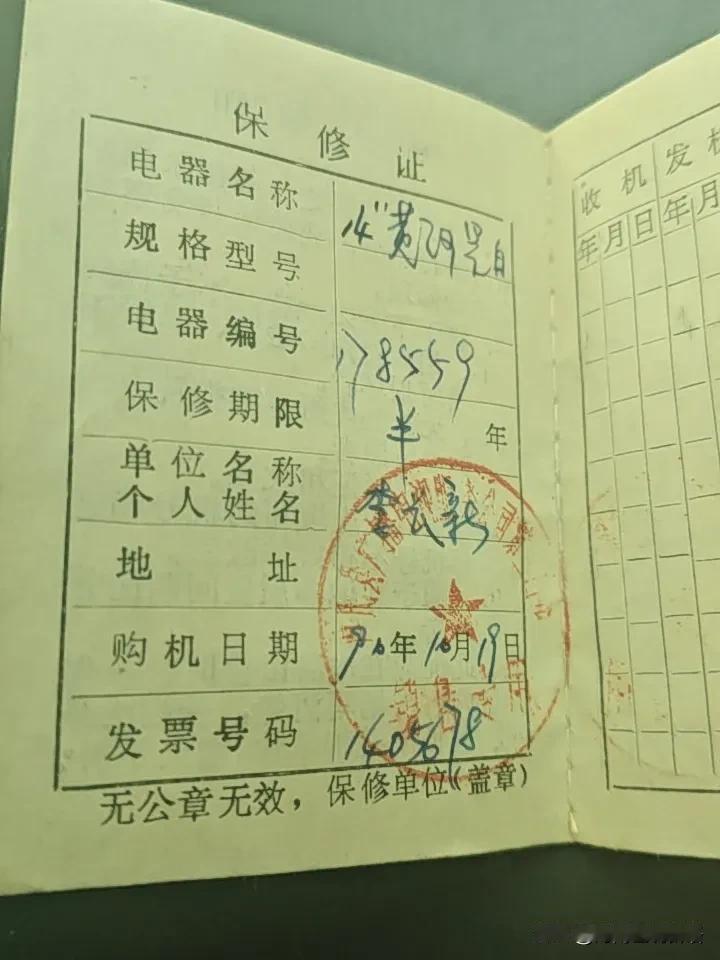 保修证
电器名称 14"黄河
规格型号
电器编号 178559
保修期限 半年
单位名称
个人姓名 李云新
地址
购机日期 90年10月19日
发票号码 1405678
无公章无效，保修单位(盖章)
收机 发机
年月日年月